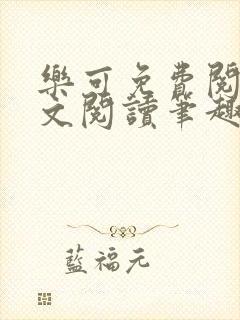 樂可免費閱
文閱讀筆趣
藍福元